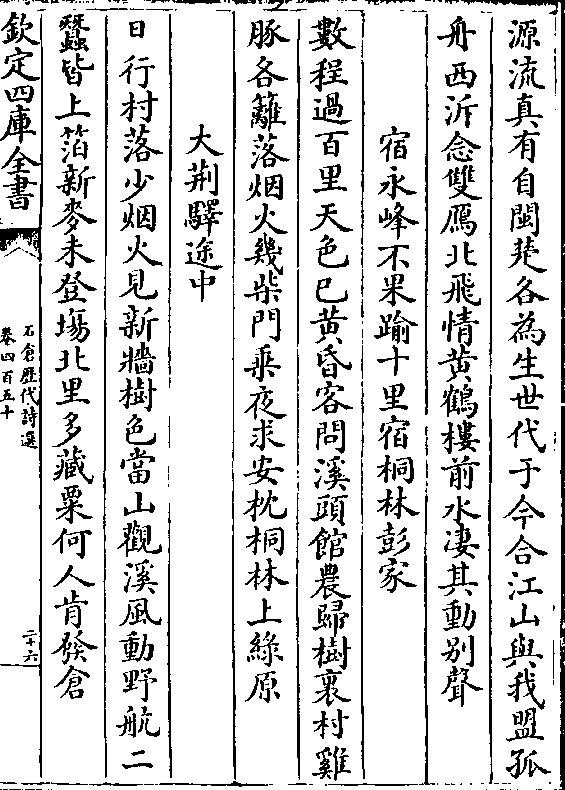 源流真有自閩楚各為生世代于今合江山與我盟孤
舟西泝念雙鴈北飛情黄鶴樓前水凄其動别聲
宿永峰不果踰十里宿桐林彭家
數程過百里天色已黄昏客問溪頭館農歸樹裏村雞
豚各籬落烟火幾柴門乗夜求安枕桐林上綠原
大荆驛途中
日行村落少烟火見新牆樹色當山觀溪風動野航二
蠶皆上箔新麥未登塲北里多藏粟何人肯發倉
欽定四庫全書
石倉歴代詩選
卷四百五十
二十六